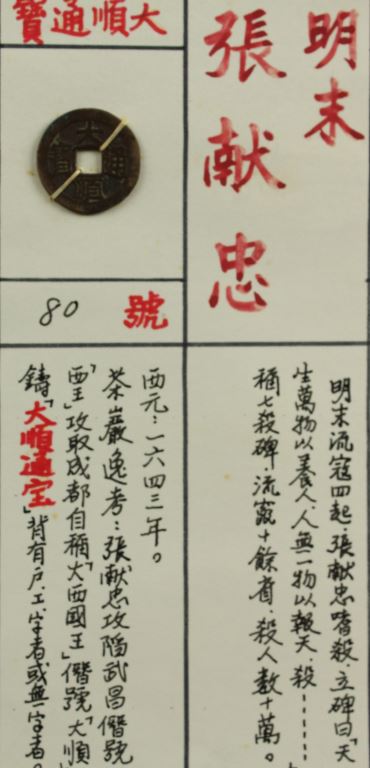 明末
張献忠
明末流寇四起.張献忠嗜殺.立碑曰「天
生萬物以養人.人無一物以報天.殺-------
稱七殺碑.流竄十餘省.殺人數十萬。
大順通寶
大順通寶
號 80
西元:一六四三年。
茶巖逸考:張献忠攻陷武昌僭號
「西王」攻取成都自稱「大西國王」僭號「大順
鑄「大順通宝」背有户.工.字者或無一字者。